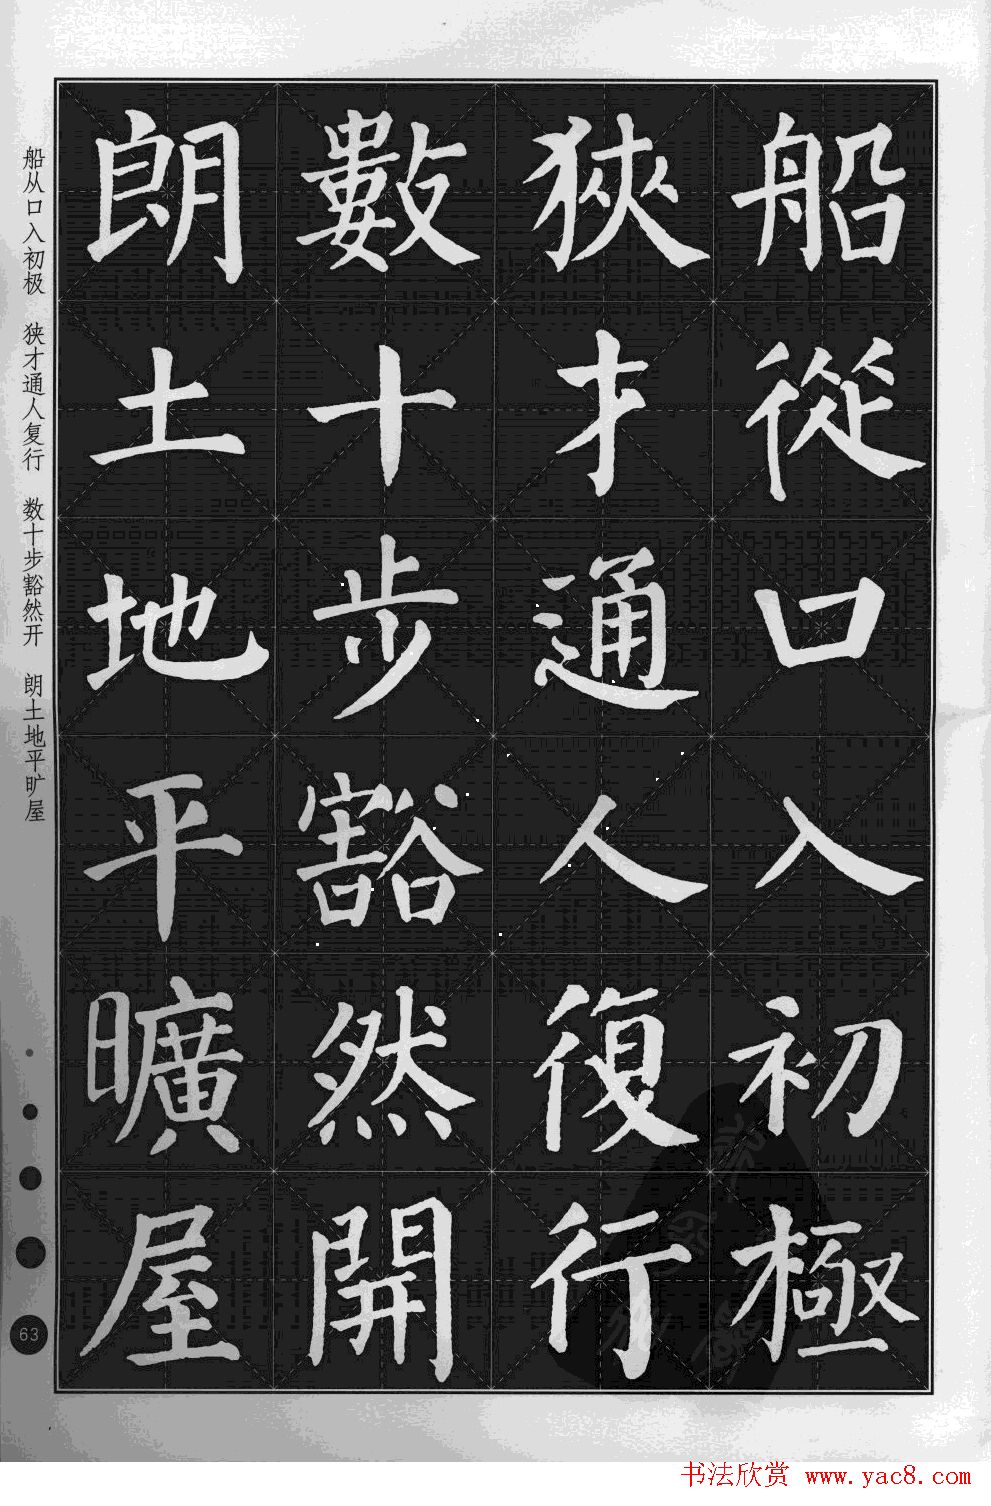 船從口入初極
狹才通人復行
數十步豁然開
朗土地平曠屋
船从口入初极 狭才通人复行 数十步豁然开 朗土地平旷屋
63
书法欣赏 www.yac8.com